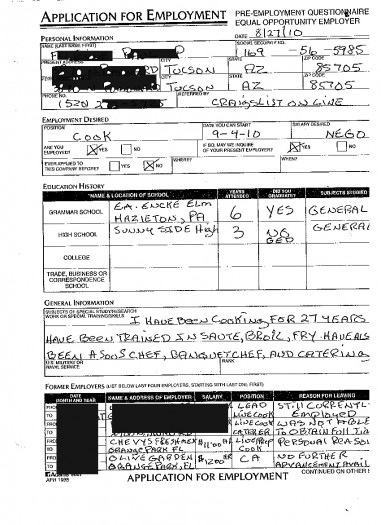 APPLICATION FOR EMPLOYMENT
PRE-EMPLOYMENT QUESTIONNAIRE
EQUAL OPPORTUNITY EMPLOYER
DATE 8/27/10
PERSONAL INFORMATION
NAME (LAST NAME FIRST)
SOCIAL SECURITY NO.
169 - 56 - 5985
PRESENT ADDRESS CITY STATE ZIP CODE
TUCSON AZ 85705
CITY STATE ZIP CODE
TUCSON AZ 85705
PHONE NO. REFERRED BY
(520) CRAIGSLIST ON LINE
EMPLOYMENT DESIRED
POSITION DATE YOU CAN START SALARY DESIRED
COOK 9-4-10 NEGO
ARE YOU EMPLOYED? X YES NO IF SO, MAY WE INQUIRE OF YOUR PRESENT EMPLOYER? X YES NO
EVER APPLIED TO THIS COMPANY BEFORE? YES X NO WHERE? WHEN?
EDUCATION HISTORY
NAME & LOCATION OF SCHOOL YEARS ATTENDED DID YOU GRADUATE? SUBJECTS STUDIED
GRAMMAR SCHOOL HAZLETON, PA 6 YES GENERAL
HIGH SCHOOL SUNNY SIDE High 3 NO GED GENERAL
COLLEGE
TRADE, BUSINESS OR CORRESPONDENCE SCHOOL
GENERAL INFORMATION
SUBJECTS OF SPECIAL STUDY/RESEARCH WORK OR SPECIAL TRAINING/SKILLS
I HAVE BEEN COOKING FOR 27 YEARS
HAVE BEEN TRAINED IN SAUTE, BROIL, FRY HAVE ALS
BEEN A SOUS CHEF, BANQUET CHEF, AND CATERING
U.S. MILITARY OR NAVAL SERVICE RANK
FORMER EMPLOYERS (LIST BELOW LAST FOUR EMPLOYERS, STARTING WITH LAST ONE FIRST)
DATE MONTH AND YEAR NAME & ADDRESS OF EMPLOYER SALARY POSITION REASON FOR LEAVING
LEAD LINE COOK STILL CURRENTL EMPLOYED
LINE COOK CATERER WAS NOT ABLE TO OBTAIN FULL TIM
CHEVYS FRESHMEX ORANGE PARK FL $11.00 COOK PERSONAL REASO
OLIVE GARDEN ORANGE PARK, FL $12.00 NO FURTHER ADVANCEMENT AVAIL
CONTINUED ON OTHER
APPLICATION FOR EMPLOYMENT